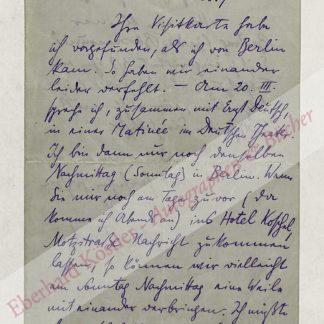 Ihre Visitkarte habe
ich vorgefunden, als ich von Berlin
kam. So haben wir einander
leider verfehlt. — Am 20. III.
spreche ich, zusammen mit Ernst Deutsch,
in einer Matinée im Deutschen Theater.
Ich bin dann nur noch denselben
Nachmittag (Sonntag) in Berlin. Wenn
Sie mir noch am Tage zuvor (da
komme ich Abends an) ins Hotel Koschel
Motzstrasse Nachricht zukommen
lassen, so können wir vielleicht
am Sonntag Nachmittag eine Weile
mit einander verbringen. Ich müsste
Eberhard Köstler - Autographen & Bücher